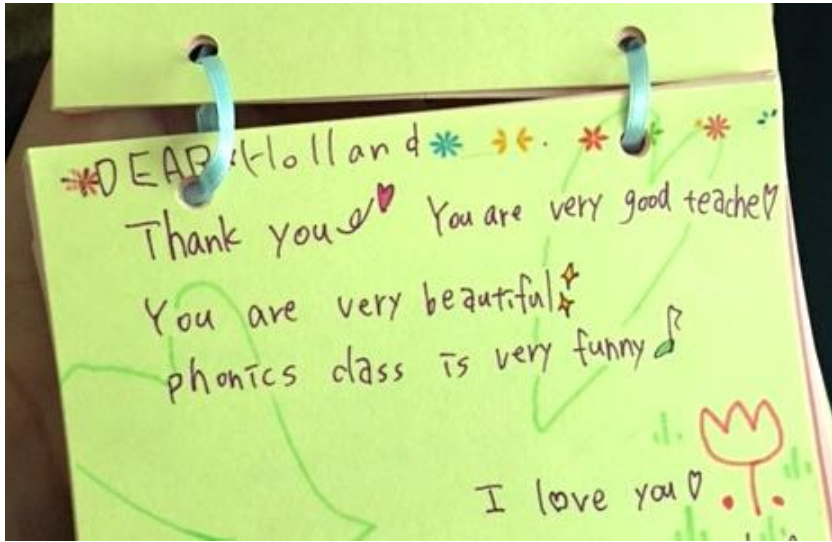 DEAR Holland
Thank you You are very good teache
You are very beautiful
phonics class is very funny
I love you